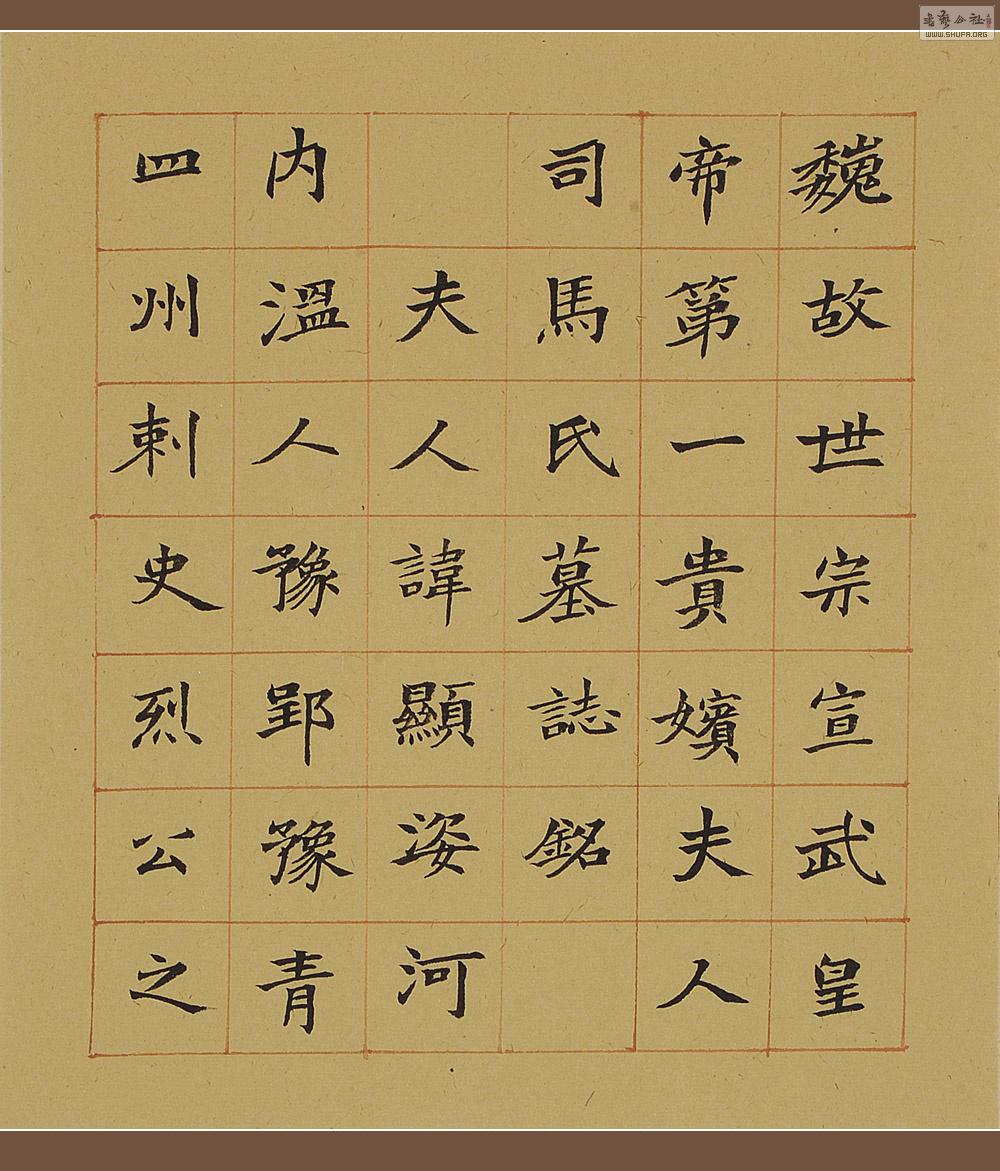 魏故世宗宣武皇
帝第一貴嬪夫人
司馬氏墓誌銘
夫人諱顯姿河
内溫人豫郢豫青
四州刺史烈公之
WWW.SHUFA.ORG